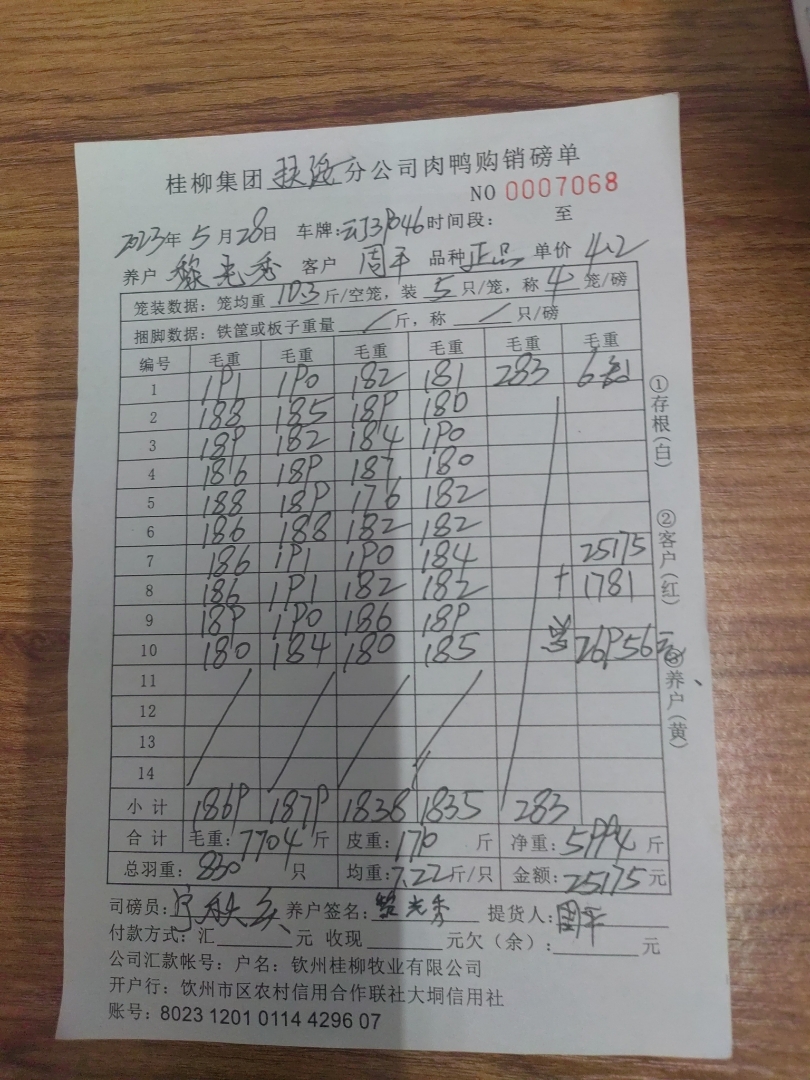 桂柳集团 分公司肉鸭购销磅单
NO 0007068
2023年 5 月 28日 车牌: 时间段: 至
养户 黎光秀 客户 周平 品种 正品 单价 4.2
笼装数据：笼均重 10.3 斤/空笼，装 5 只/笼，称 4 笼/磅
捆脚数据：铁筐或板子重量 / 斤，称 / 只/磅
编号 毛重 毛重 毛重 毛重 毛重 毛重
1 191 190 182 181 283 6
2 188 185 189 180
3 189 182 184 190
4 186 189 187 180
5 188 189 176 182
6 186 188 182 182
7 186 191 190 184 25175
8 186 191 182 182 + 1781
9 189 190 186 189
10 180 184 180 185 26956元
11
12
13
14
小计 1869 1879 1838 1835 283
合计 毛重：7704 斤 皮重：1710 斤 净重：5994 斤
总羽重：830 只 均重：7.22斤/只 金额：25175元
司磅员： 养户签名：黎光秀 提货人：周平
付款方式：汇 元 收现 元欠（余）： 元
公司汇款帐号：户名：钦州桂柳牧业有限公司
开户行：钦州市区农村信用合作联社大垌信用社
账号：8023 1201 0114 4296 07
①存根（白）
②客户（红）
③养户（黄）